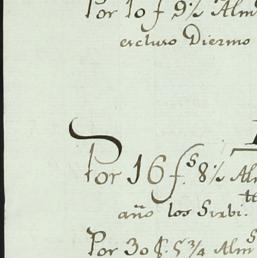 Por 10 f 9 ½ Alm
excluso Diezmo
Por 16 f.s 8 ½ Al
año los Sirbi.
Por 30 f. 5 ¾ Alm.s